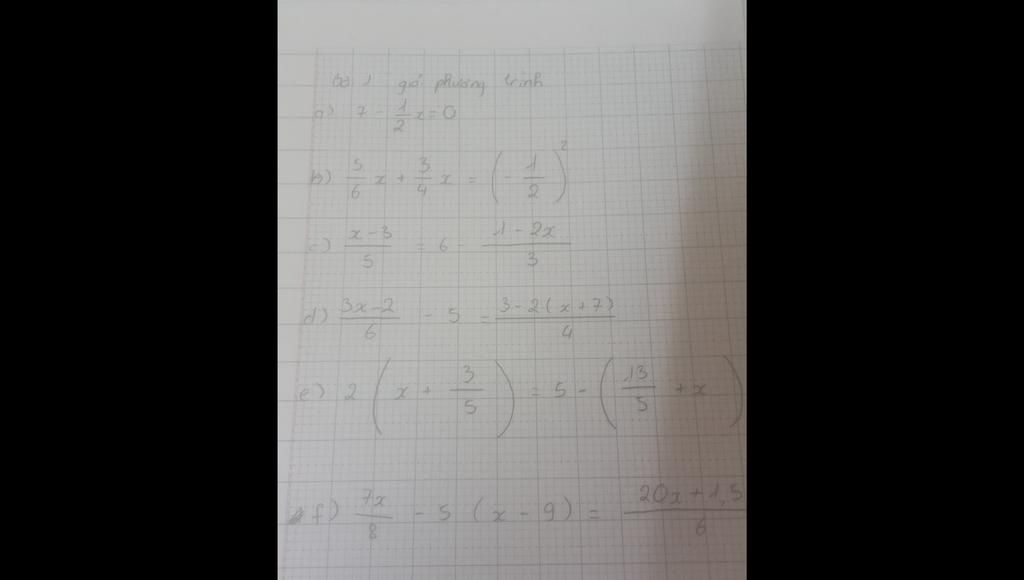 bài 1 giải phương trình
a) 7 - 1/2 x = 0
b) 5/6 x + 3/4 x = (- 1/2)²
c) x-3/5 = 6 - 1-2x/3
d) 3x-2/6 - 5 = 3-2(x+7)/4
e) 2 (x + 3/5) = 5 - (13/5 + x)
f) 7x/8 - 5 (x - 9) = 20x+1,5/6